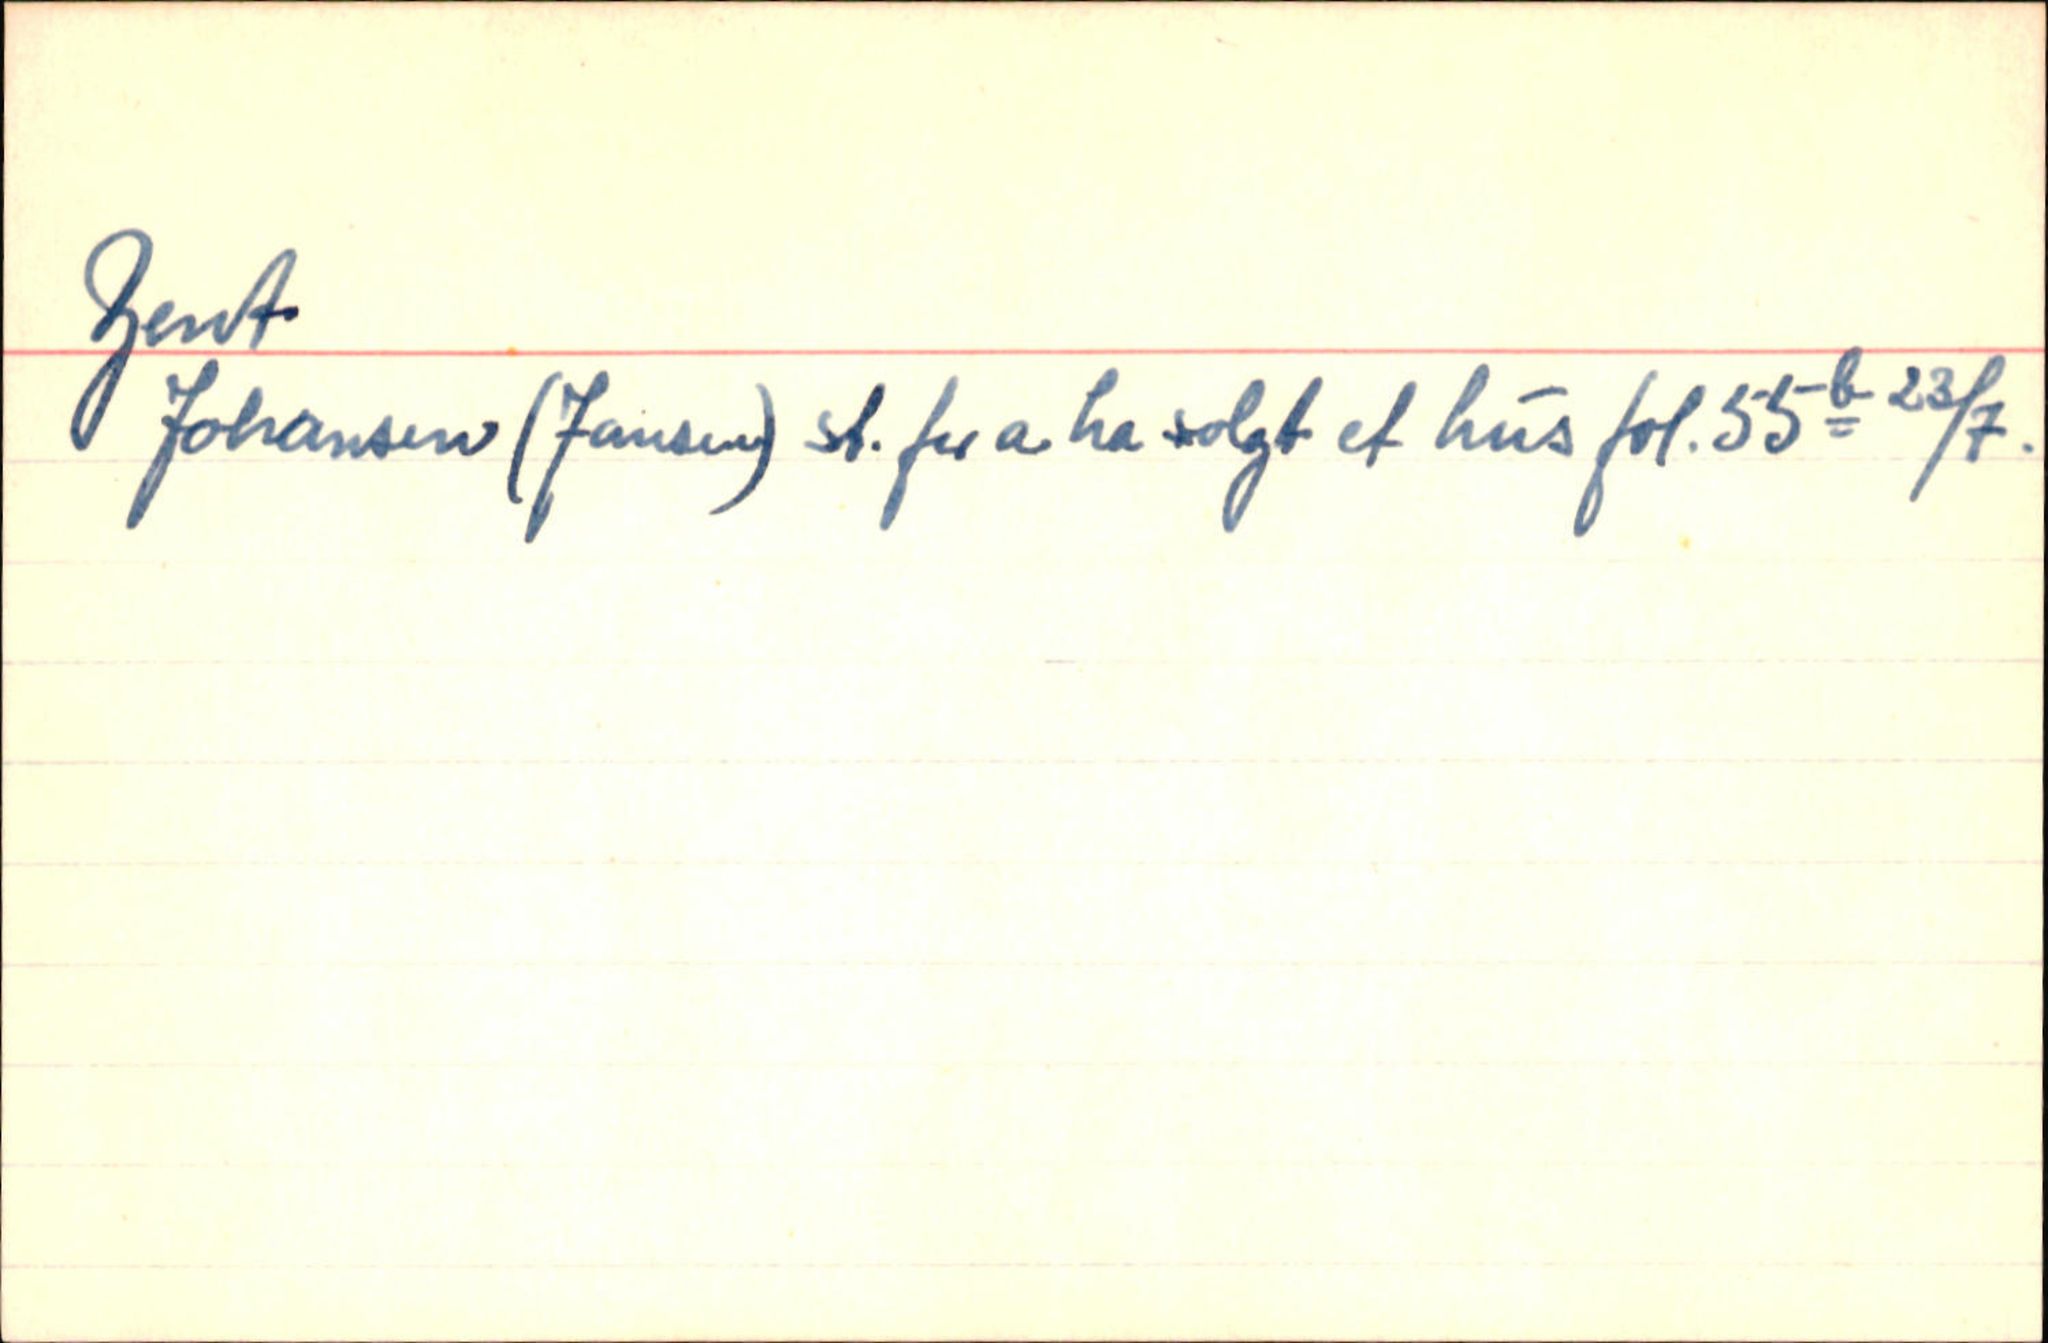 Zent
Johansen (Jansen) st. for a ha solgt et hus fol. 55b 23/7.